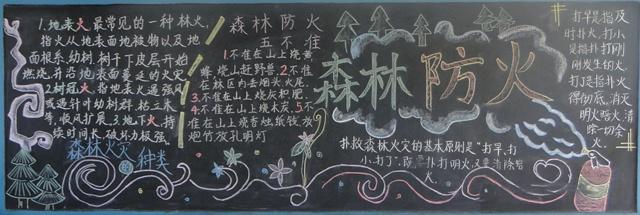 1.地表火最常见的一种林火,
指火从地表面地被物以及地
面根系、幼树、树干下皮层开始
燃烧,并沿地表面蔓延的火灾
2.树冠火 指地表火遇强风
或遇针叶幼树群,枯立木
等,顺风扩展。3.地下火,持
续时间长,破坏力极强。
森林火灾的种类
森林防火
五不准
1.不准在山上烧黄
蜂、烧山赶野兽 2.不准
在林区内丢烟头火尾.
3.不准在山上烧灰积肥
4.不准在山上烧木炭,5.不
准在山上烧香烛纸钱、放
炮竹放孔明灯
森林防火
扑救森林火灾的基本原则是"打早、打
小、打了",既要扑打明火,又要清除暗
火。
打早是指及
时扑火,打小
是指扑打刚
刚发生的火,
打了是指扑火
得彻底,消灭
明火暗火,清
除一切余
火。